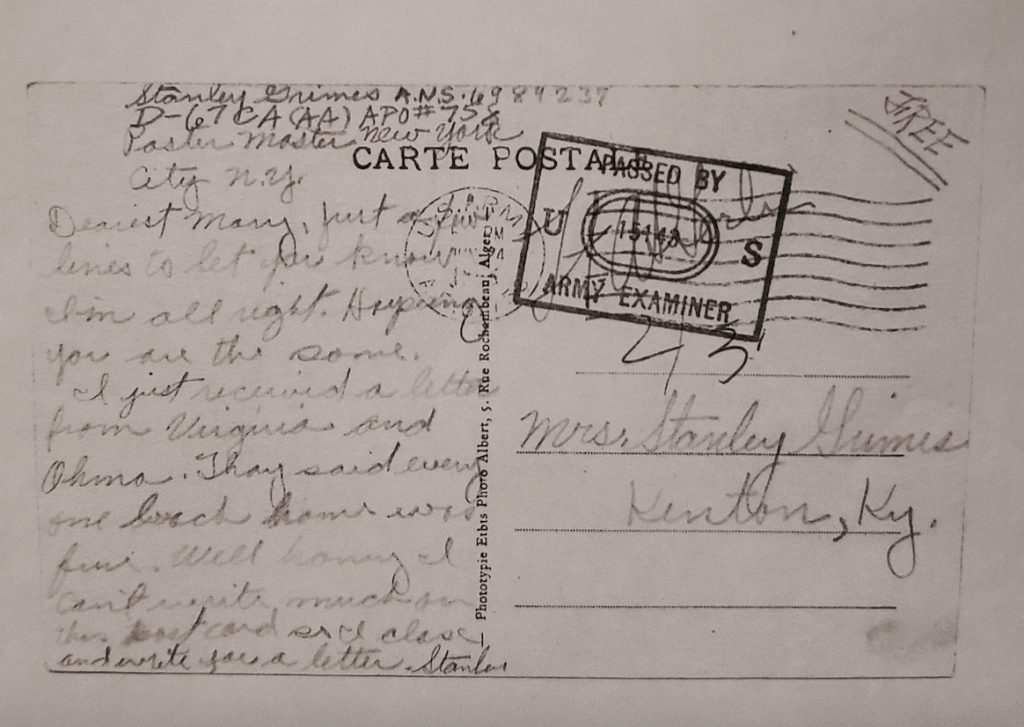 Stanley Grimes A.N.S. 6984237
D-67 CA (AA) APO # 758
Paster Master New York
City N.Y.
FREE
CARTE POSTALE
PASSED BY
U 15143 S
ARMY EXAMINER
U.S. ARMY
PM
43
Dearest Mary, just a few
lines to let you know
I'm all right. Hopeing
you are the same.
I just received a letter
from Virginia and
Ohma. Thay said every
one back home was
fine. Well honey I
can't write much on
this post card so I close
and write you a letter. Stanley
Phototypie Etbts Photo Albert, 5, Rue Rochambeau, Alger
Mrs. Stanley Grimes
Kenton, Ky.